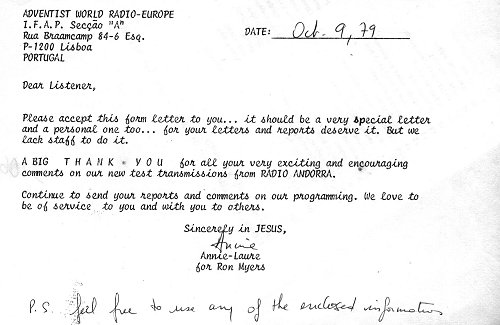 ADVENTIST WORLD RADIO-EUROPE
I.F.A.P. Secção "A"
Rua Braamcamp 84-6 Esq.
P-1200 Lisboa
PORTUGAL
DATE: Oct. 9, 79
Dear Listener,
Please accept this form letter to you... it should be a very special letter
and a personal one too... for your letters and reports deserve it. But we
lack staff to do it.
A BIG T H A N K - Y O U for all your very exciting and encouraging
comments on our new test transmissions from RADIO ANDORRA.
Continue to send your reports and comments on our programming. We love to
be of service to you and with you to others.
Sincerely in JESUS,
Annie
Annie-Laure
for Ron Myers
P.S. feel free to use any of the enclosed information